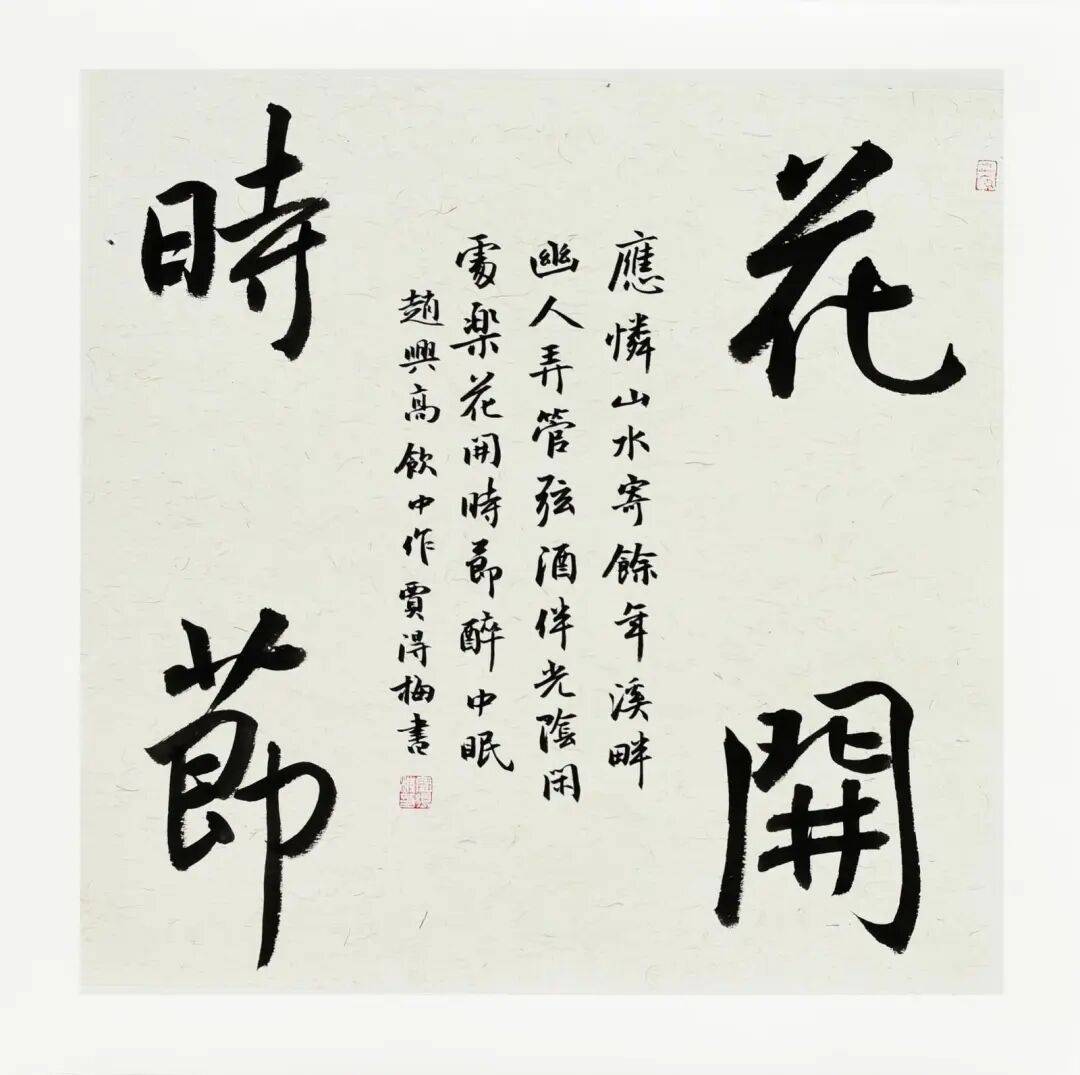 花開
時節
應憐山水寄餘年溪畔
幽人弄管弦酒伴光陰閑
處楽花開時節醉中眠
趙興高飲中作賈得梅書